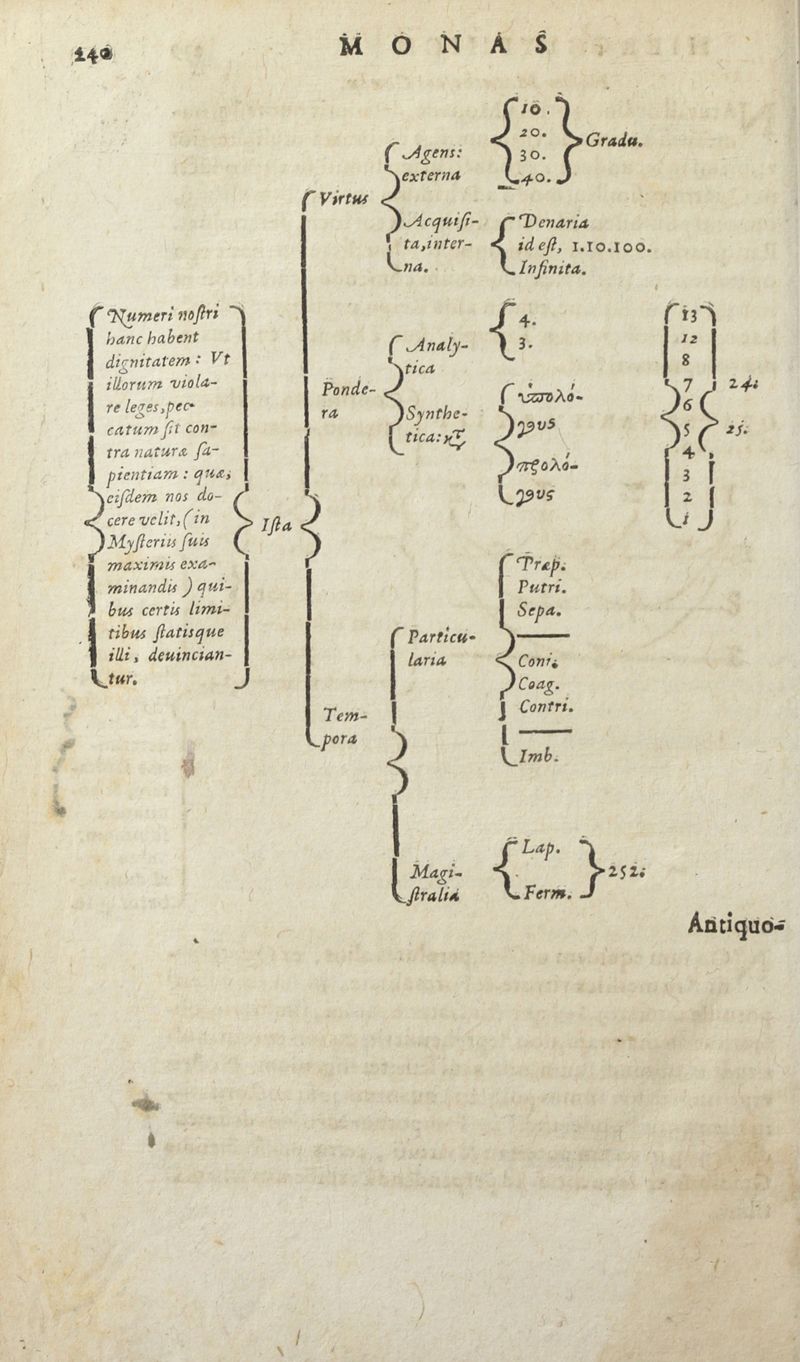 MONAS
Numeri noſtri
hanc habent
dignitatem : Vt
illorum viola-
re leges, pec-
catum ſit con-
tra naturæ ſa-
pientiam : quæ,
eiſdem nos do-
cere velit, (in
Myſteriis ſuis
maximis exa-
minandis ) qui-
bus certis limi-
tibus ſtatisque
illi, deuincian-
tur.
Iſta
Virtus
Agens:
externa
10.
20.
30.
40.
Gradu.
Acquiſi-
ta, inter-
na.
Denaria
id eſt, 1.10.100.
Infinita.
Ponde-
ra
Analy-
tica
4.
3.
Synthe-
tica:
ὑπολό-
γους
προλό-
γους
13
12
8
7
6
5
4
3
2
1
24.
25.
Tem-
pora
Particu-
laria
Præp.
Putri.
Sepa.
Coni.
Coag.
Contri.
Imb.
Magi-
ſtralia
Lap.
Ferm.
252.
Antiquo-